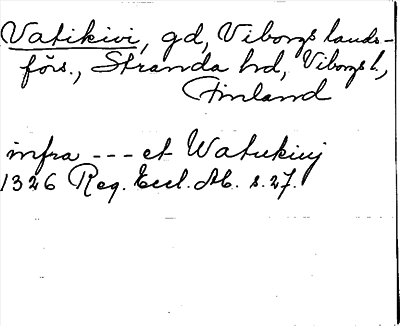 Vatikivi, gd, Viborgs lands-
förs., Stranda hd, Viborgs l.,
Finland
infra --- et Watukivj
1326 Reg. Eccl. Ab. s. 27.